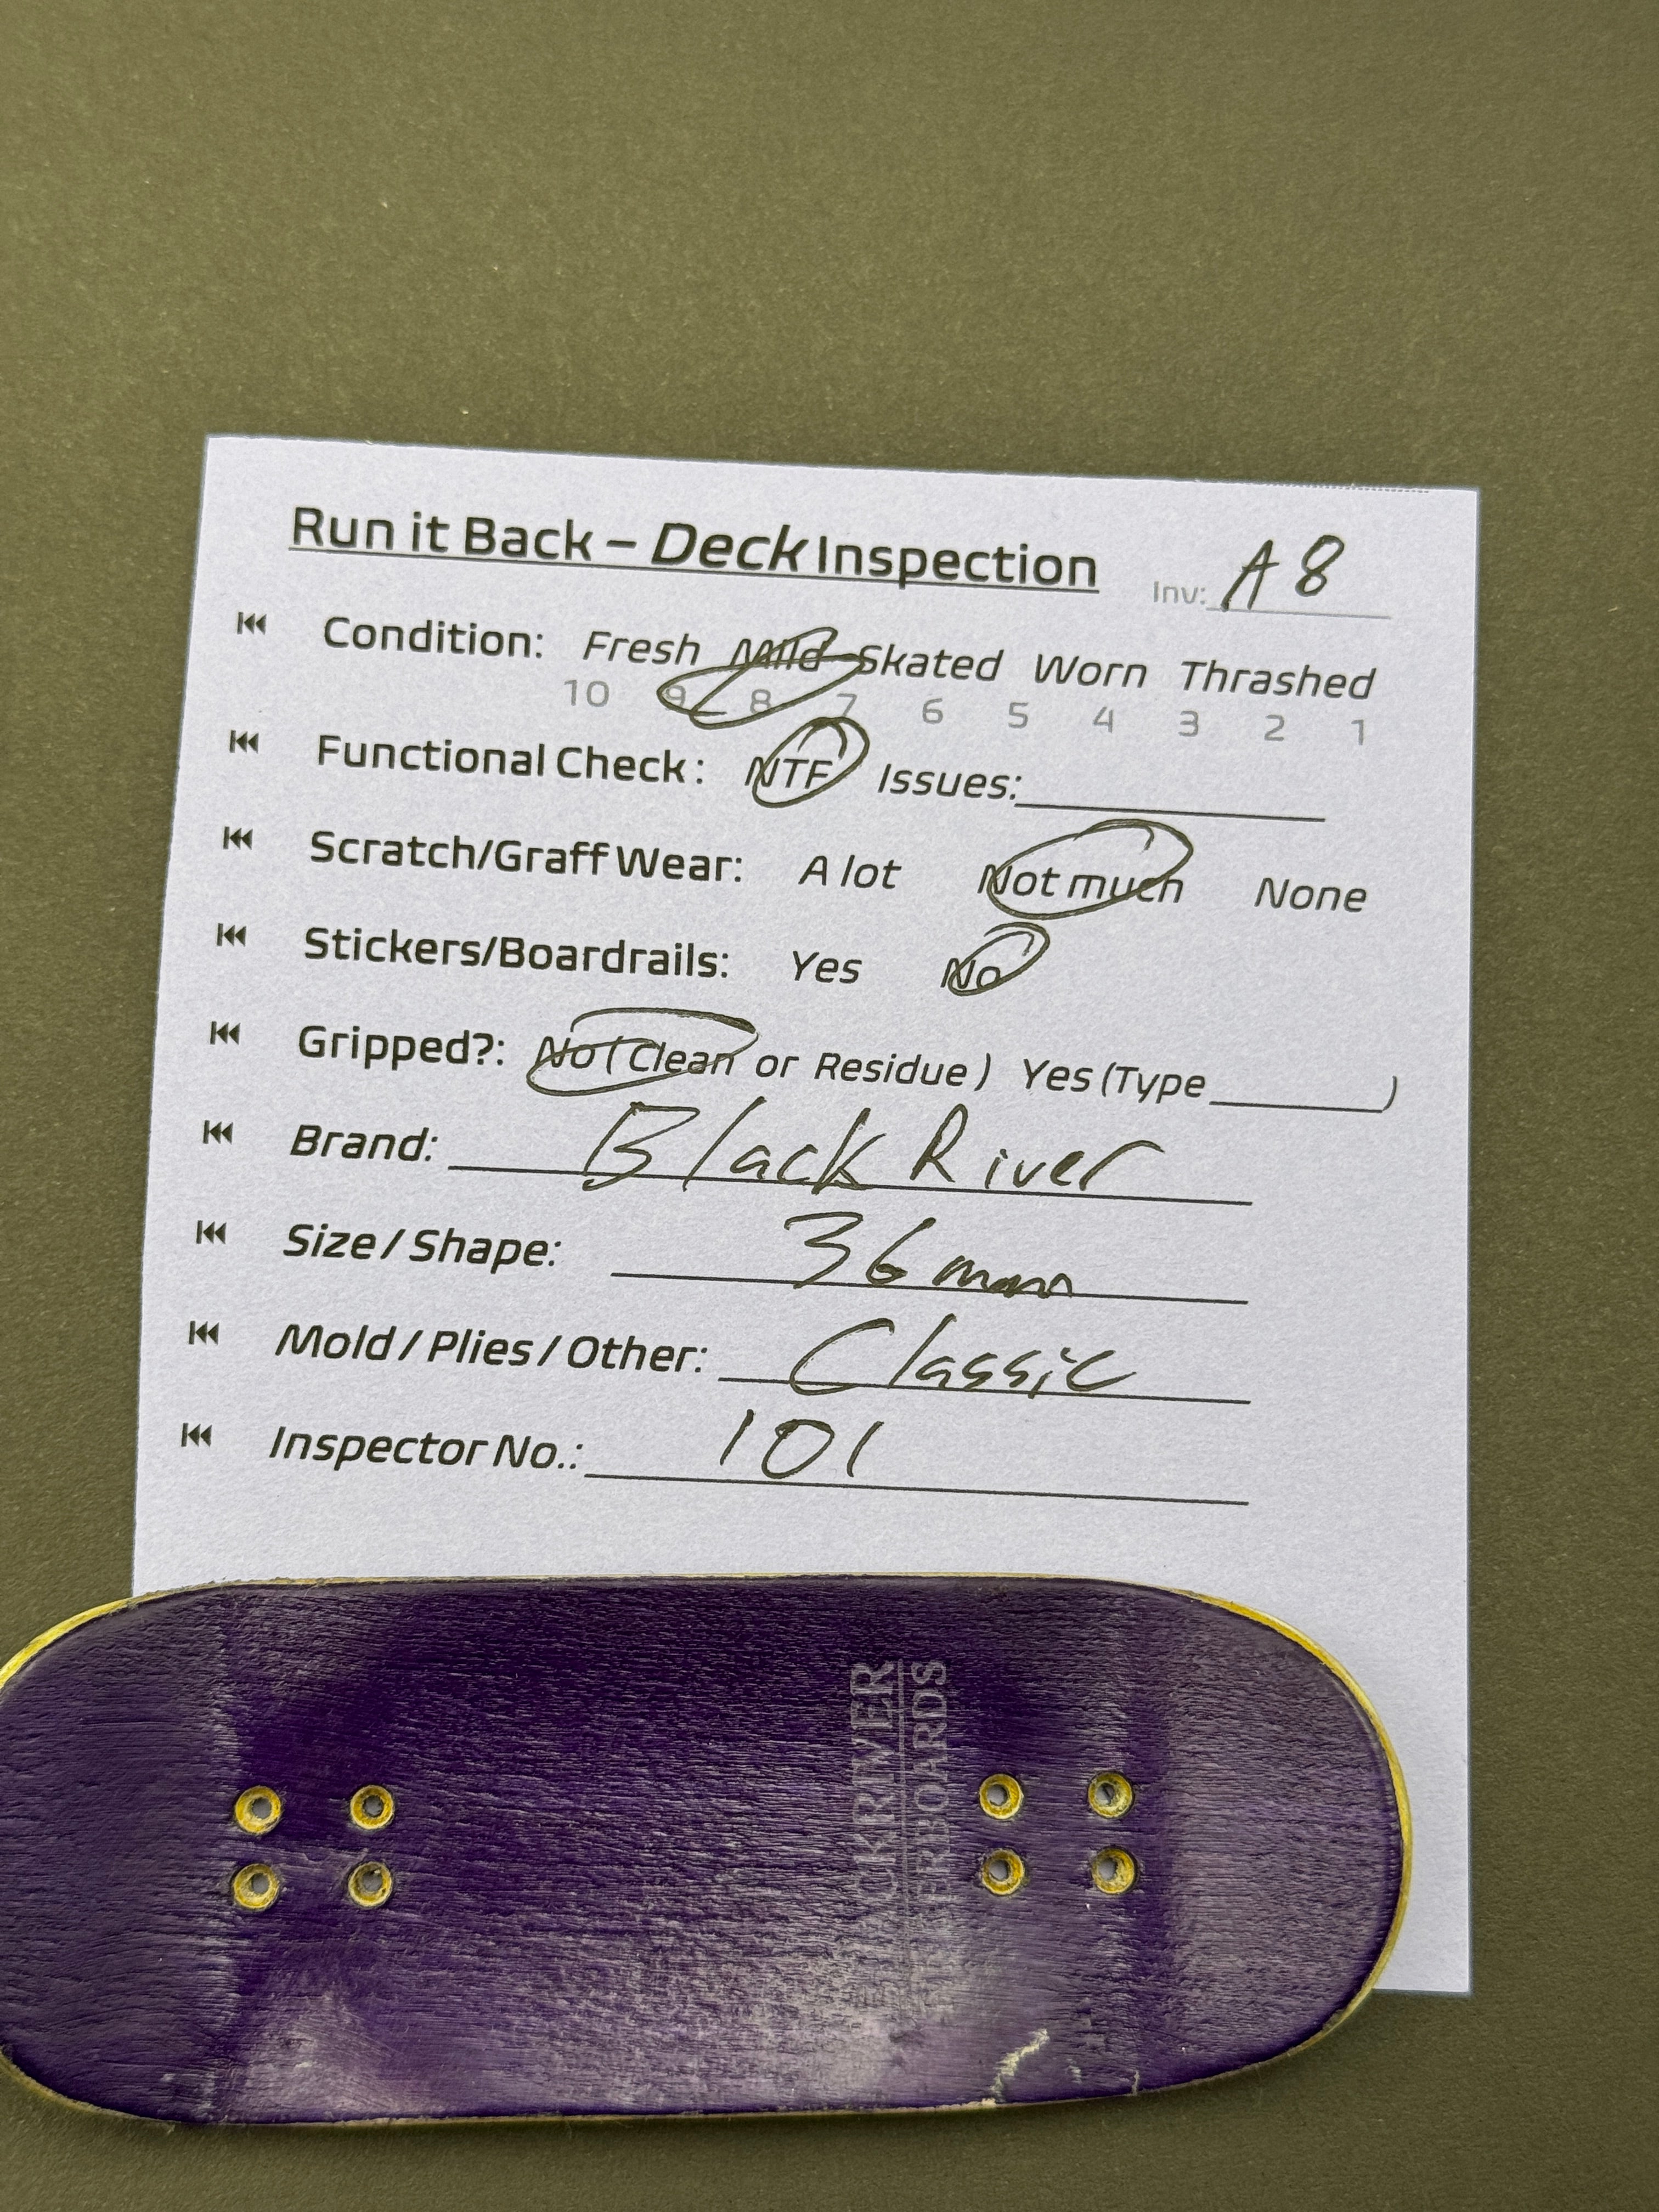 Run it Back – Deck Inspection Inv: A8
Condition: Fresh Mild Skated Worn Thrashed
10 9 8 7 6 5 4 3 2 1
Functional Check: NTF Issues:
Scratch/Graff Wear: A lot Not much None
Stickers/Boardrails: Yes No
Gripped?: No (Clean or Residue) Yes (Type )
Brand: Black River
Size / Shape: 36mm
Mold / Plies / Other: Classic
Inspector No.: 101
ACKRIVER
ERBOARDS